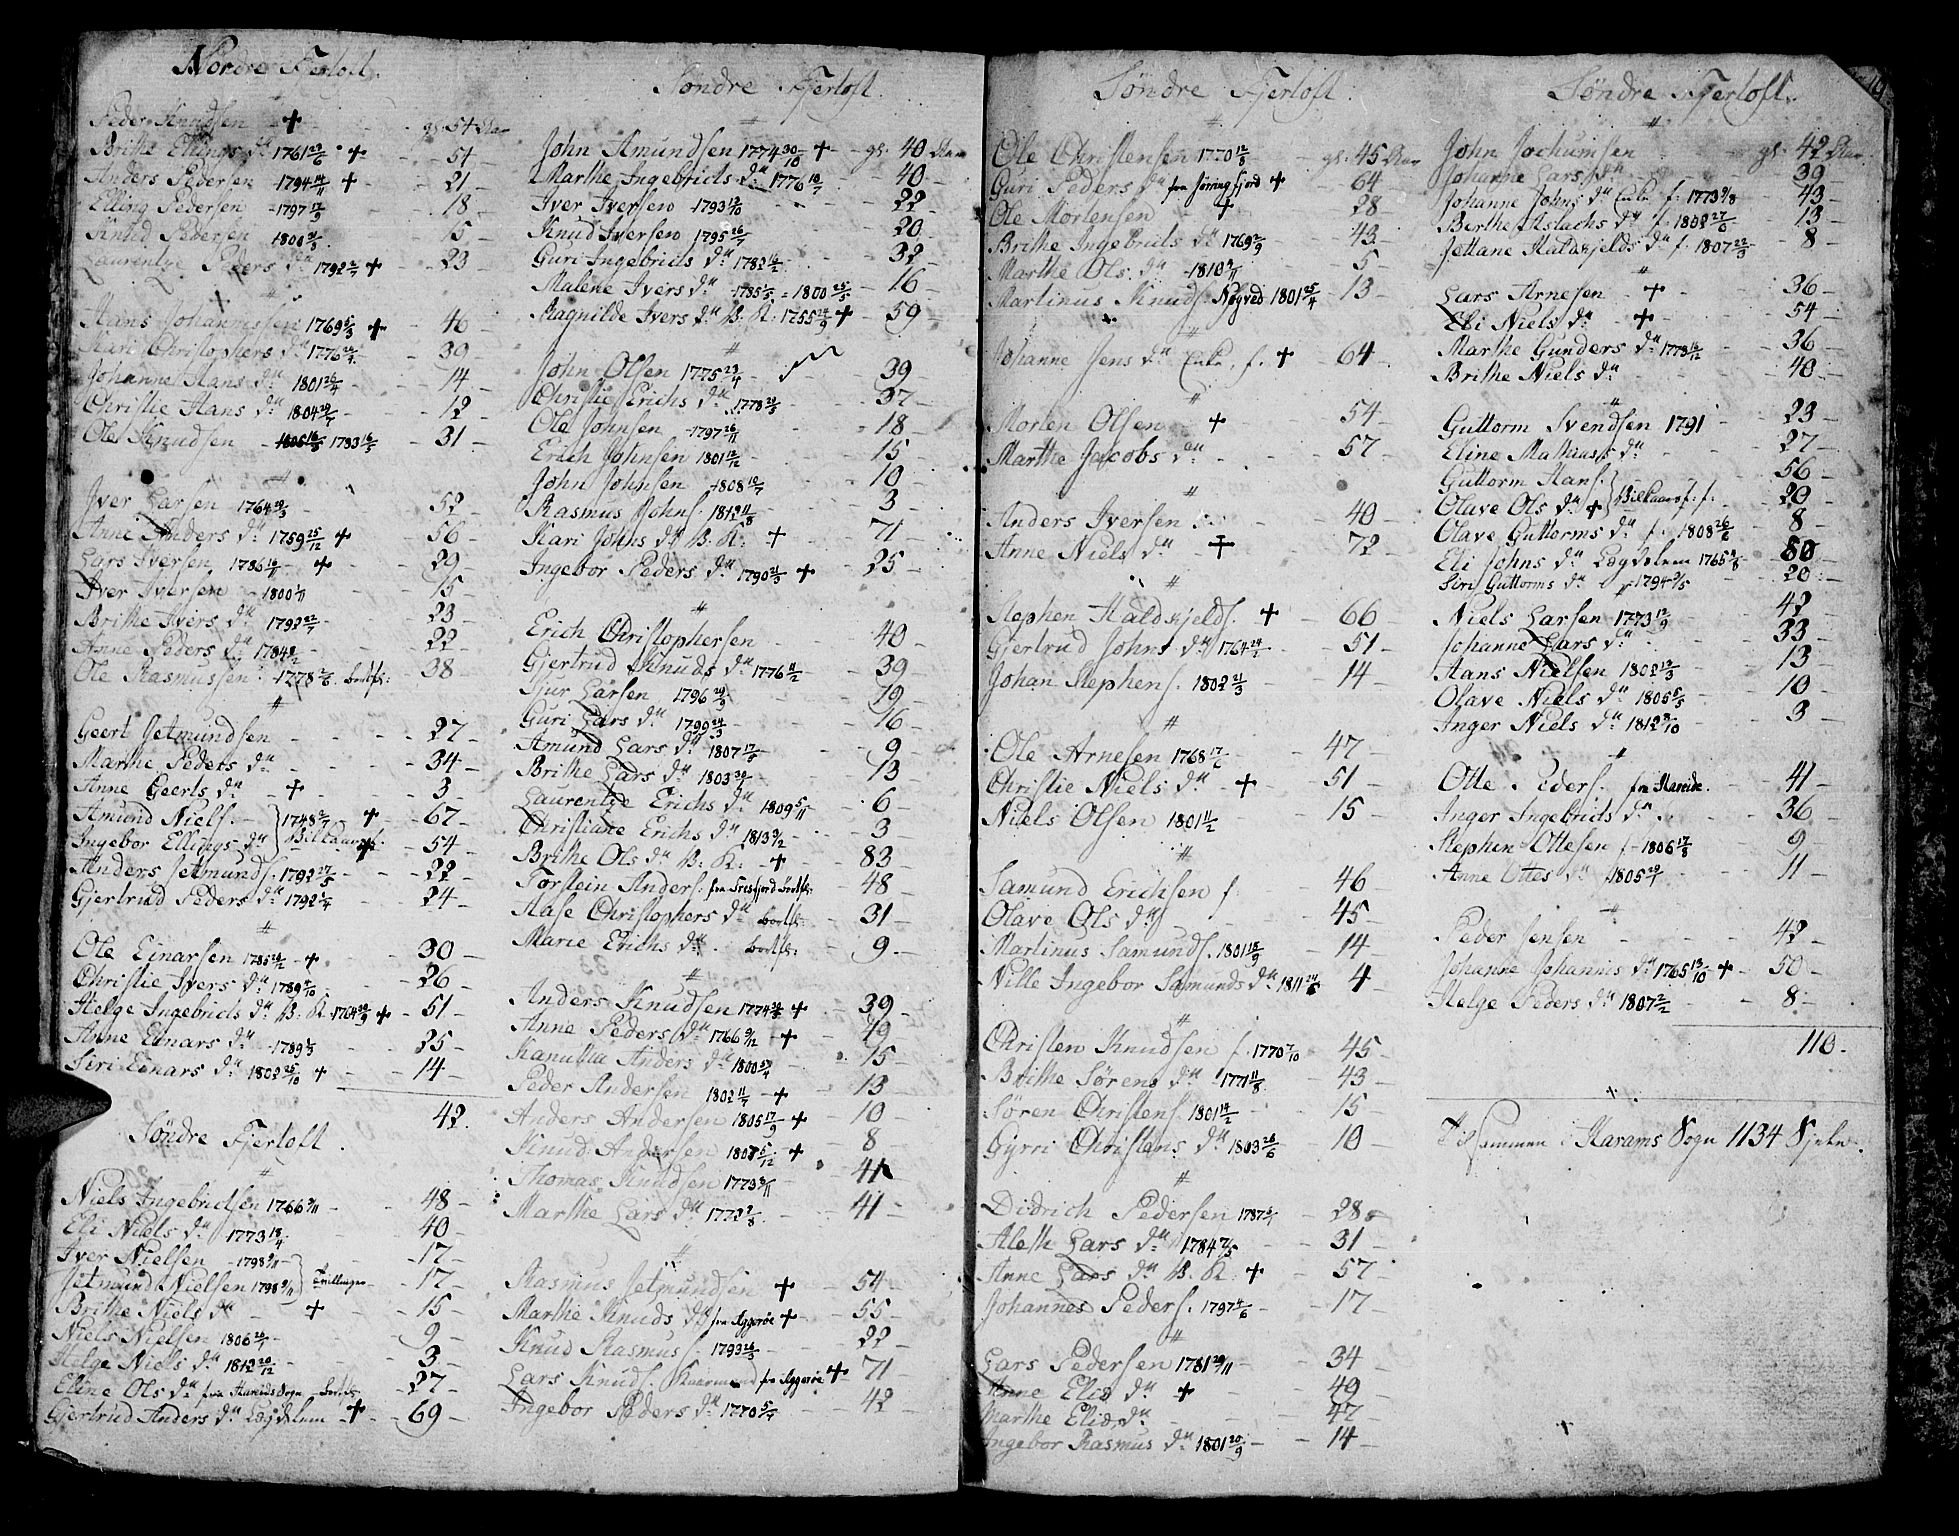 Nordre Fjertoft.
Peder Knudsen + gl. 54 Aar
Brithe Ellings d. 1761 + 51
Anders Pedersen 1794 14/11 + 21
Elling Pedersen 1797 18
Knud Pedersen 1800 15
Laurentze Peders d. 1792 + 23
#
Hans Johannessen 1769 5/3 + 46
Kari Christophers d. 1776 39
Johanne Hans d. 1801 26/4 14
Christie Hans d. 1804 12
Ole Knudsen 1783 16/5 31
#
Iver Larsen 1764 52
Anne Anders d. 1759 25/12 + 56
Lars Iversen 1786 16/11 + 29
Iver Iversen 1800 15
Brithe Ivers d. 1792 23
Anne Peders d. 1784 22
Ole Rasmussen 1778 bortfl: 38
#
Geert Jetmundsen 27
Marthe Peders d. 34
Anne Geerts d. + 3
Amund Niels. 1748 + 67
Ingebor Ellings d. + 54
Anders Jetmunds. 1792 17/5 22
Gjertrud Peders d. 1792 24
#
Ole Einarsen 1785 + 30
Christie Ivers d. 1789 26
Helge Ingebrids d. B. K. 1764 + 51
Anne Einars d. 1789 25
Siri Einars d. 1802 25/10 + 14
42.
Søndre Fjertoft.
#
Niels Ingebridsen 1766 48
Eli Niels d. 1773 40
Iver Nielsen 1798 9/11 17
Jetmund Nielsen 1798 9/11 Tvillinger 17
Brithe Niels d. + 15
Niels Nielsen 1806 9
Helge Niels d. 1812 20/12 3
Eline Ols d. fra Hareids Sogn bortfl. 27
Gjertrud Anders d. Lægdslem + 69
Søndre Fjertoft.
#
John Amundsen 1774 30/10 + gl. 40 Aar
Marthe Ingebrids d. 1776 40
Iver Iversen 1793 22
Knud Iversen 1795 20
Guri Ingebrids d. 1782 32
Malene Ivers d. 1800 25/5 16
Ragnilde Ivers d. B. K. 1755 + 59
#
John Olsen 1775 23/4 39
Christie Erichs d. 1778 37
Ole Johnsen 1797 26/11 18
Erich Johnsen 1801 12/12 15
John Johnsen 1808 10
Rasmus Johns. 1812 11/8 3
Kari Johns d. B. K. + 71
Ingebor Peders d. 1790 21/3 + 25
#
Erich Christophersen 40
Gjertrud Knuds d. 1776 39
Sjur Larsen 1796 29/9 19
Guri Lars d. 1799 24/3 16
Amund Lars d. 1807 9
Brithe Lars d. 1803 13
Laurentze Erichs d. 1809 5/11 6
Christiane Erichs d. 1813 3
Brithe Ols d. B. K. + 83
Torstein Anders. bortfl: 48
Aase Christophers d. bortfl: 31
Marie Erichs d. bortfl: 9
#
Anders Knudsen 1774 + 39
Anne Peders d. 1766 9/12 + 49
Kanutta Anders d. 1800 15
Peder Andersen 1802 + 13
Anders Andersen 1805 17/9 + 10
Knud Andersen 1807 5/12 + 8
Thomas Knudsen 1773 41
Marthe Lars d. 1772 41
#
Rasmus Jetmundsen + 54
Marthe Knuds d. fra Aggerøe + 55
Knud Rasmus. 1793 22
Lars Knuds. Kaarmand fra Aggerøe + 71
Ingebor Peders d. 1770 42
Søndre Fjertoft.
#
Ole Christensen 1770 12/8 gl. 45 Aar
Guri Peders d. fra Jørringfjord + 64
Ole Mortensen + 28
Brithe Ingebrids d. 1769 43
Marthe Ols d. 1810 5
Martinus Knuds. Nogved 1801 25/4 13
#
Johanne Jens d. Enke, f. + 64
#
Morten Olsen + 54
Marthe Jacobs d. 57
#
Anders Iversen 40
Anne Niels d. + 72
#
Stephen Haldskjelds. + 66
Gjertrud Johns d. 1764 51
Johan Stephens. 1802 21/3 14
#
Ole Arnesen 1768 47
Christie Niels d. + 51
Niels Olsen 1801 11/2 15
#
Samund Erichsen f. 46
Olave Ols d. 45
Martinus Samunds. 1801 14
Nille Ingebor Samunds d. 1811 4
#
Christen Knudsen f. 1770 7/10 45
Brithe Sørens d. 1771 11/8 43
Søren Christens. 1801 14/2 15
Gyrri Christens d. 1803 10
#
Didrich Pedersen 1787 28
Aleth Lars d. 1784 31
Anne Lars d. B. K. + 57
Johannes Peders. 1797 17
#
Lars Pedersen 1781 34
Anne Eliæ d. + 49
Marthe Eliæ d. 47
Ingebor Rasmus d. 1801 20/9 14
Søndre Fjertoft.
#
John Jochumsen gl. 42 Aar
Johanne Lars d. 39
Johanne Johns d. Enke f. 1773 43
Berthe Aslachs d. f. 1802 13
Jettane Haldskjelds d. f. 1807 22/3 8
#
Lars Arnesen + 36
Eli Niels d. + 54
Marthe Gunders d. 1778 36
Brithe Niels d. 40
#
Guttorm Svendsen 1791 23
Eline Mathias d. 27
Guttorm Hans. 56
Olave Ols d. + 20
Olave Guttorms d. f. 1808 8
Eli Johns d. Lægdslem 1765 50
Siri Guttorms d. 1794 20
Niels Larsen 1773 42
Johanne Lars d. 33
Hans Nielsen 1802 13
Olave Niels d. 1805 10
Inger Niels d. 1812 3
#
Otte Peders. fra Hareide. 41
Inger Ingebrids d. 36
Stephen Ottesen f. 1806 9
Anne Ottes d. 1805 11
#
Peder Jensen 42
Johanne Johannis d. 1765 13/10 + 50
Helge Peders d. 1807 8
110.
Tilsammen i Harams Sogn 1134 Sjæle.